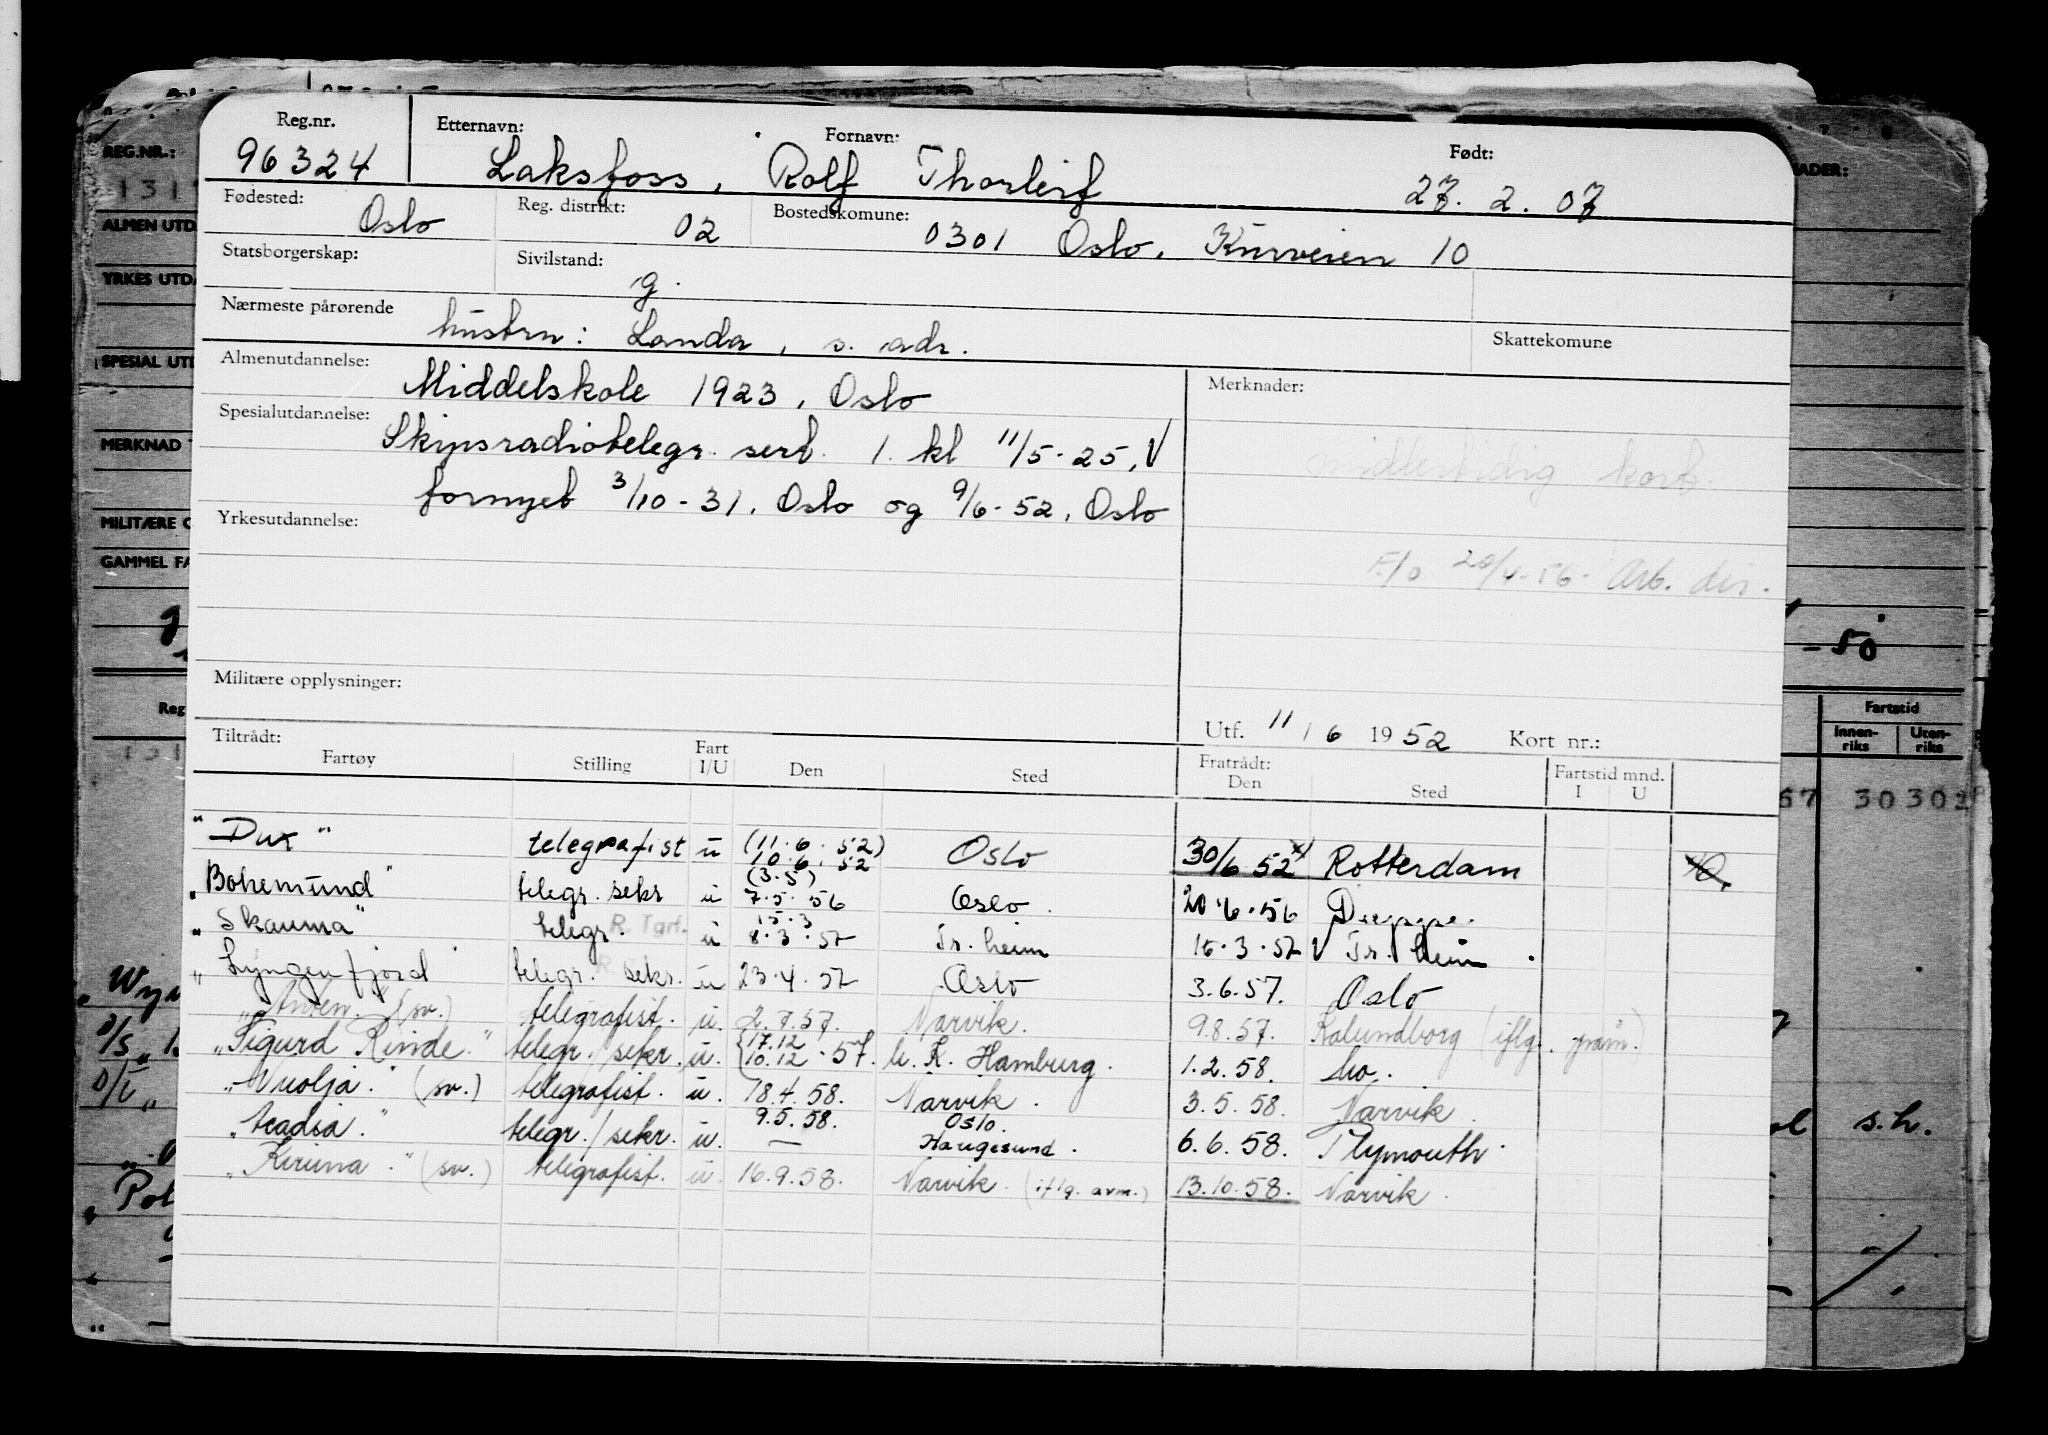 Reg.nr. Etternavn: Fornavn: Født:
96324 Laksfoss, Rolf Thorleif 27. 2. 07
Fødested: Oslo Reg. distrikt: 02 Bostedskomune: 0301 Oslo,
Statsborgerskap: Sivilstand: g. 10
Nærmeste pårørende hustru: Landa, s. adr. Skattekomune
Almenutdannelse: Middelskole 1923, Oslo Merknader:
Spesialutdannelse: Skipsradiotelegr. sert. 1. kl 11/5-25, V midlertidig kort.
fornyet 3/10-31, Oslo og 9/6-52, Oslo
Yrkesutdannelse:
F/o 20/4-56- Arb. dir.
Militære opplysninger:
Utf. 11/6 1952 Kort nr.:
Tiltrådt: Fratrådt:
Fartøy Stilling Fart I/U Den Sted Den Sted Fartstid mnd. I U
"Dux" telegrafist u (11.6.52) 10.6.52 Oslo 30/6 52 x) Rotterdam
"Bohemund" telegr. sekr u (3.5) 7.5.56 Oslo. 20.6.56 Dieppe.
"Skauma" telegr. R. Tgrf. u 15.3 8.3.57 Tr.heim 15.3.57 V Tr.heim.
"Lyngenfjord telegr. sekr. u 23.4.57 Oslo 3.6.57. Oslo
(sv.) telegrafist. u. 2.7.57. Narvik. 9.8.57. Kalundborg (iflg. )
"Sigurd Rinde." telegr./sekr. u. {17.12 10.12.57. u.K. Hamburg. 1.2.58. do.
"Vuolja." (sv.) telegrafist. u. 18.4.58. Narvik. 3.5.58. Narvik.
"Acadia." telegr./sekr. u. 9.5.58. — Oslo. Haugesund. 6.6.58. Plymouth.
"Kiruna." (sv.) telegrafist. u. 16.9.58. Narvik. (iflg. avm.) 13.10.58. Narvik.
REG.NR.:
131
ALMEN UTD
YRKES UTDA
SPESIAL UTD
MERKNAD
MILITÆRE
GAMMEL FA
Reg
131
ADER:
-50
Fartstid
Innen-riks Uten-riks
67 30 302
s.h.